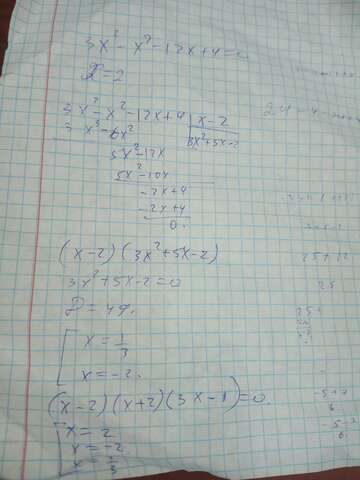 3x³-x²-12x+4=0
x=2
3x³-x²-12x+4 | x-2
3x³-6x² | 3x²+5x-2
5x²-12x
5x²-10x
-2x+4
-2x+4
0.
(x-2)(3x²+5x-2)
3x²+5x-2=0
D=49.
x=1/3
x=-2.
(x-2)(x+2)(3x-1)=0.
x=2
x=-2